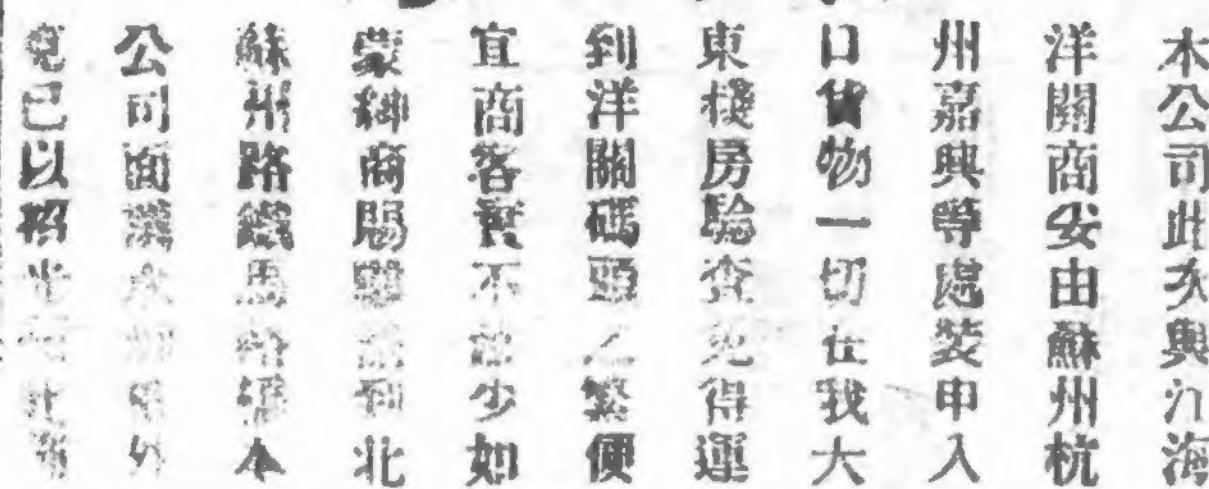 本公司此次與江海
洋關商安由蘇州杭
州嘉興等處裝申入
口貨物一切在我大
東棧房驗查免得運
到洋關碼頭之繁便
宜商客實不少如
蒙紳商賜顧請到北
蘇州路鐵馬路橋本
公司面議
已以招